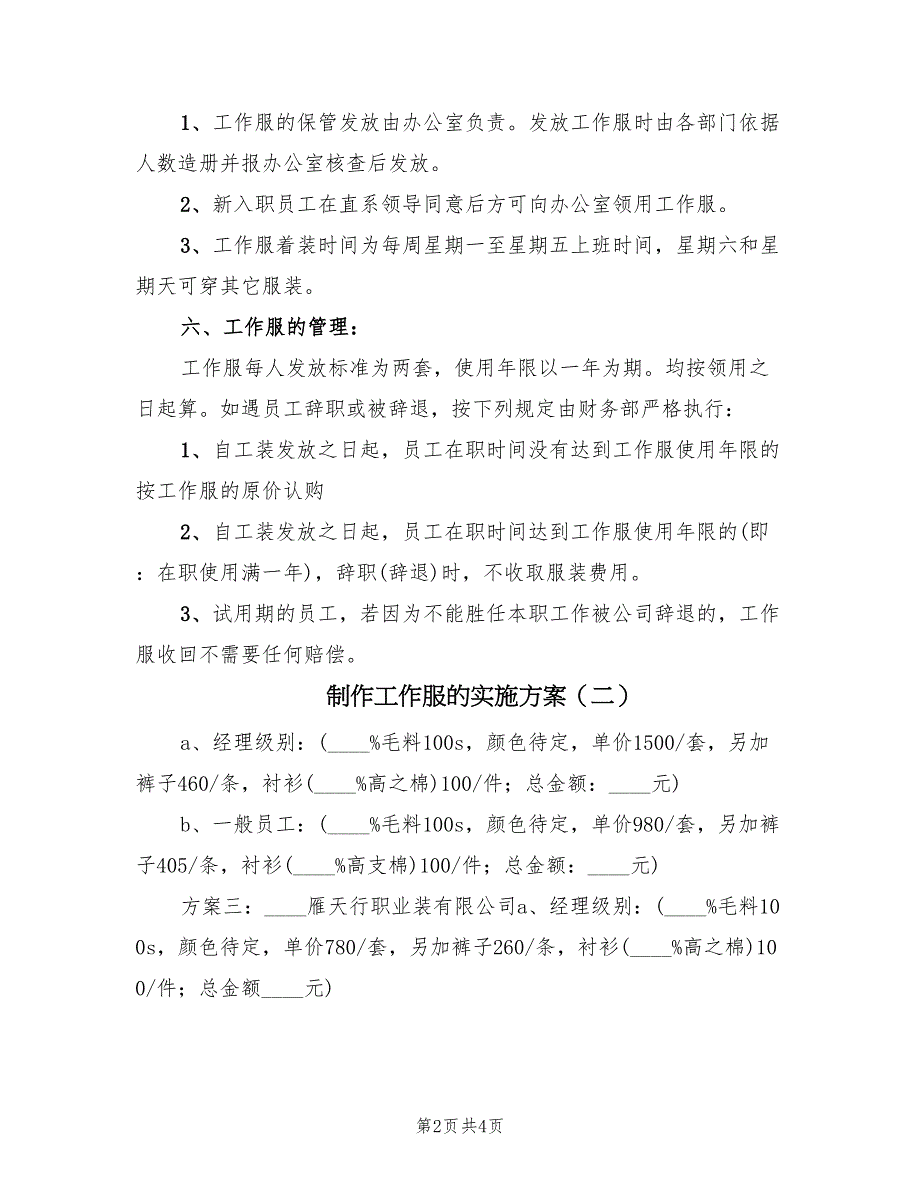 1、工作服的保管发放由办公室负责。发放工作服时由各部门依据
人数造册并报办公室核查后发放。
2、新入职员工在直系领导同意后方可向办公室领用工作服。
3、工作服着装时间为每周星期一至星期五上班时间，星期六和星
期天可穿其它服装。
六、工作服的管理：
工作服每人发放标准为两套，使用年限以一年为期。均按领用之
日起算。如遇员工辞职或被辞退，按下列规定由财务部严格执行：
1、自工装发放之日起，员工在职时间没有达到工作服使用年限的
按工作服的原价认购
2、自工装发放之日起，员工在职时间达到工作服使用年限的(即
：在职使用满一年)，辞职(辞退)时，不收取服装费用。
3、试用期的员工，若因为不能胜任本职工作被公司辞退的，工作
服收回不需要任何赔偿。
制作工作服的实施方案（二）
a、经理级别：(____%毛料100s，颜色待定，单价1500/套，另加
裤子460/条，衬衫(____%高之棉)100/件；总金额：____元)
b、一般员工：(____%毛料100s，颜色待定，单价980/套，另加裤
子405/条，衬衫(____%高支棉)100/件；总金额：____元)
方案三：____雁天行职业装有限公司a、经理级别：(____%毛料10
0s，颜色待定，单价780/套，另加裤子260/条，衬衫(____%高之棉)10
0/件；总金额____元)
第2页共4页